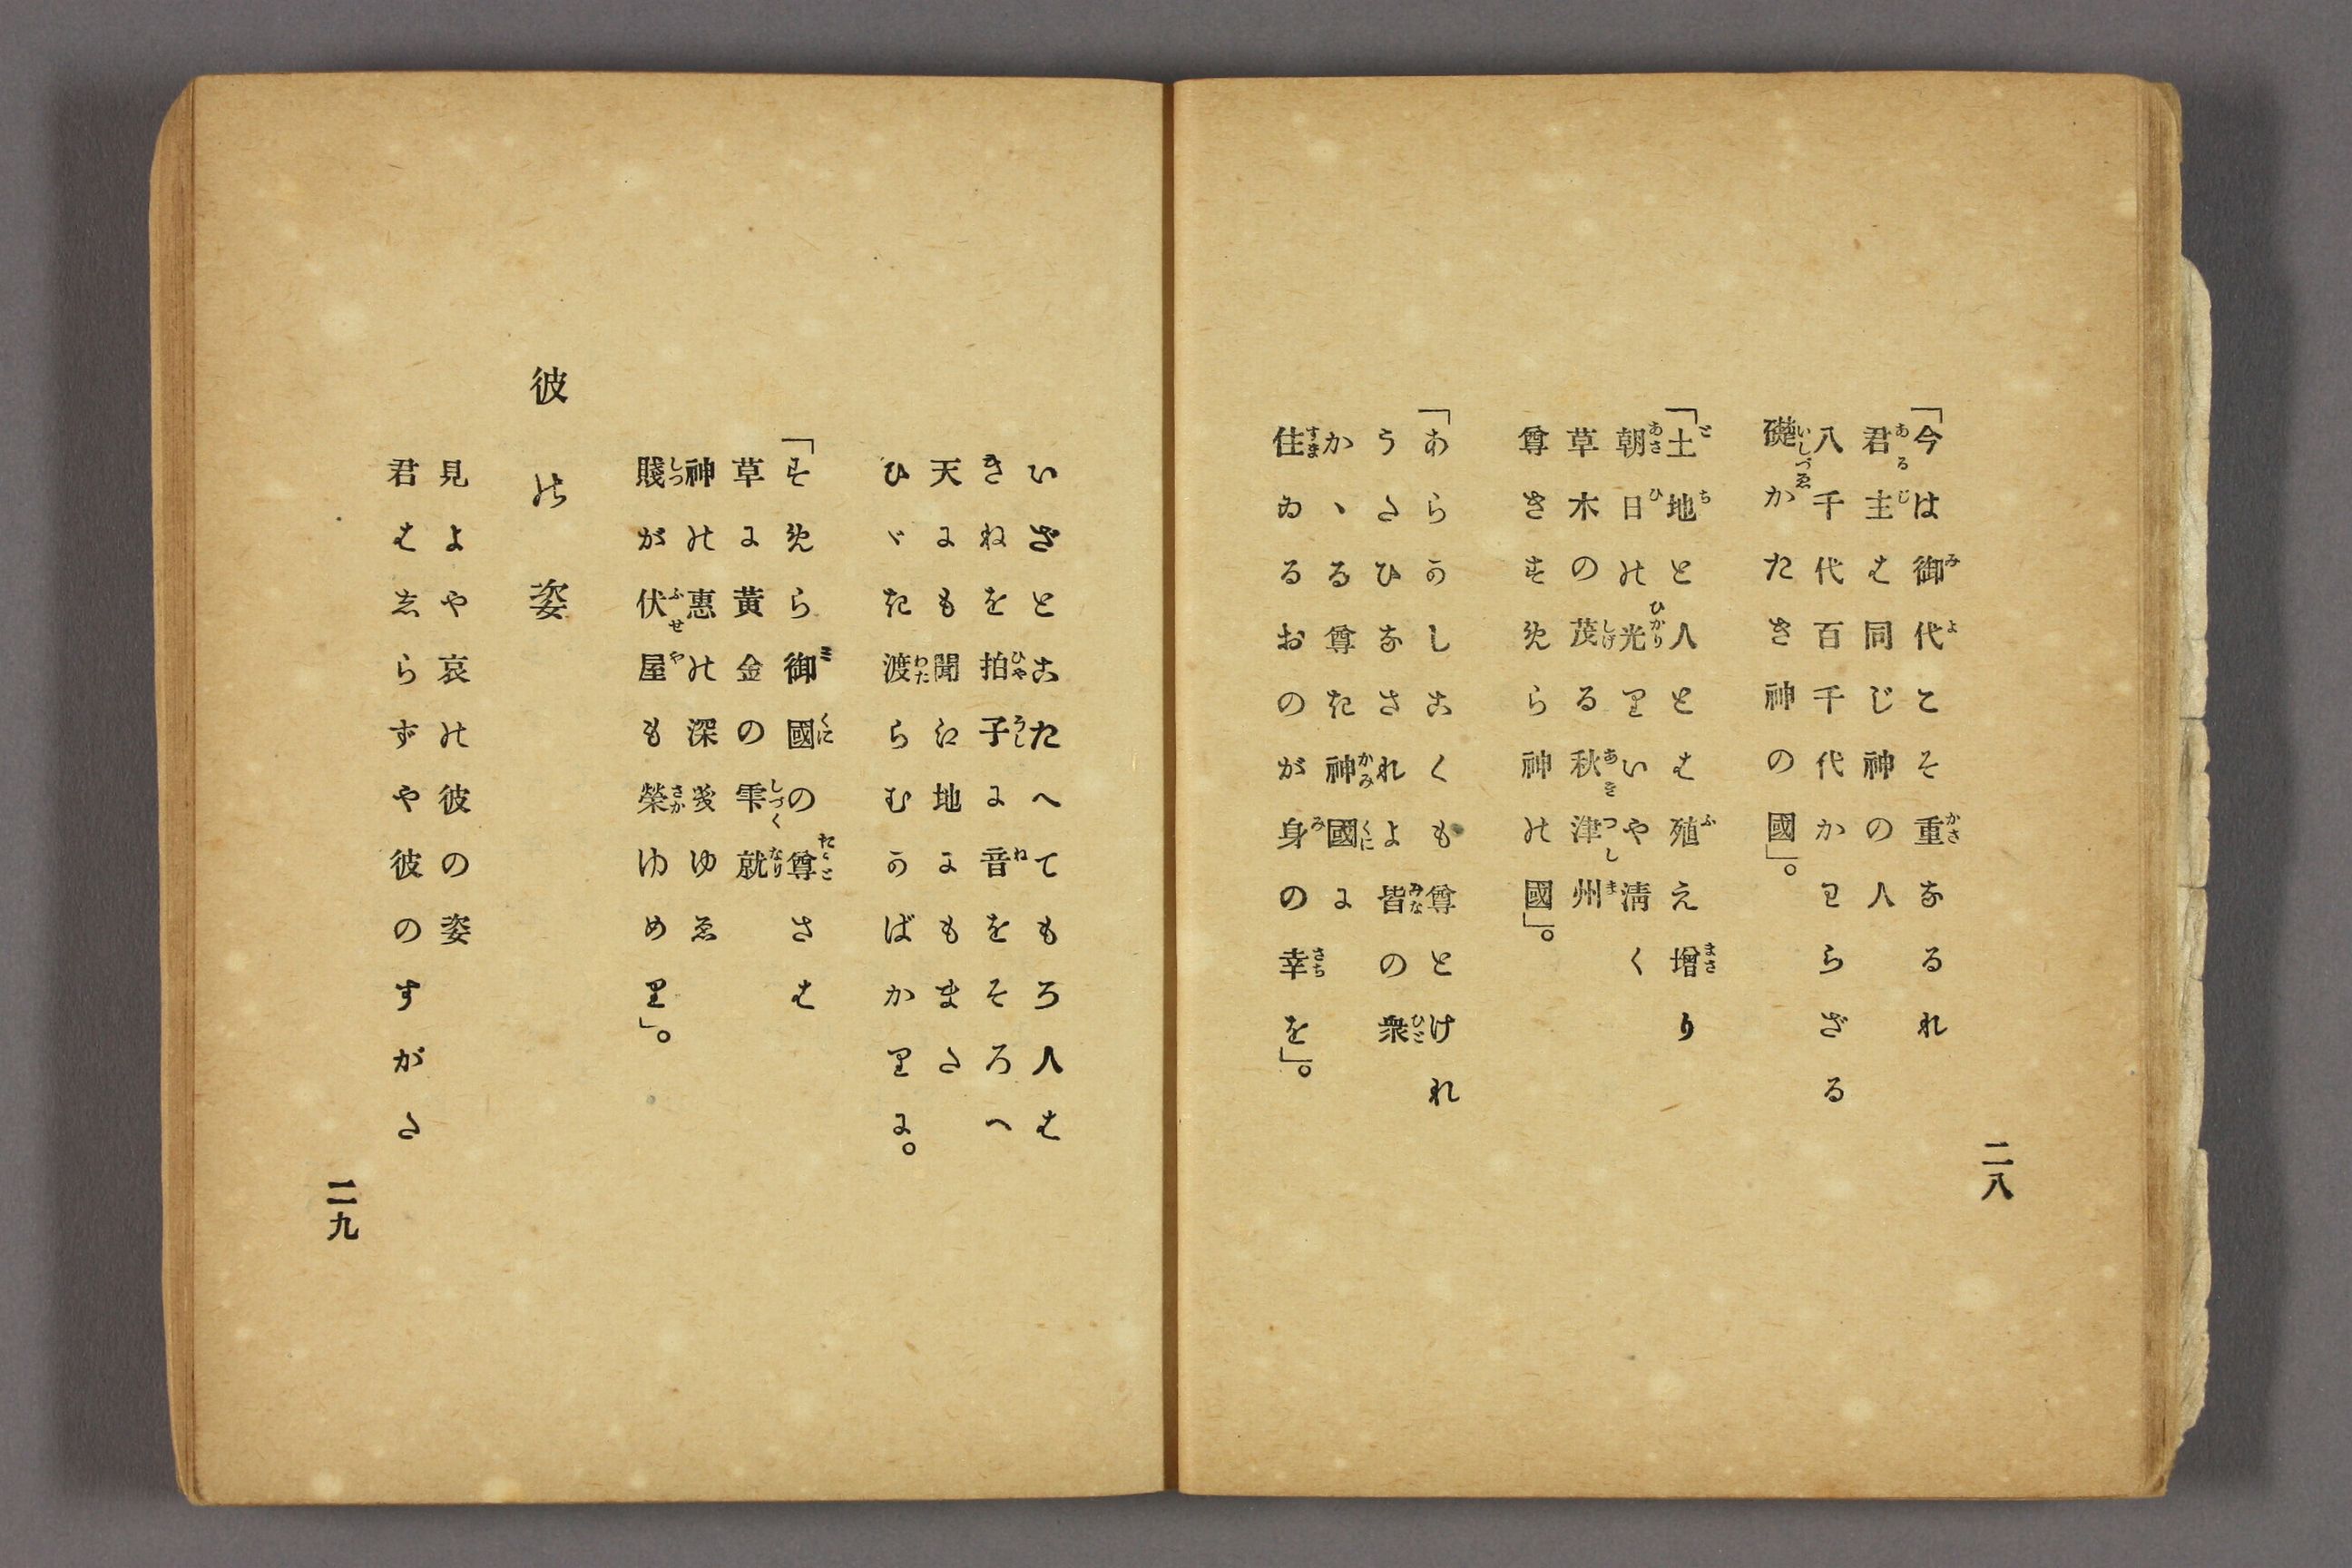 二八
「今は御代こそ重なるれ
君主は同じ神の人
八千代百千代かわらざる
礎かたき神の國」。
「土地と人とは殖え增り
朝日の光りいや淸く
草木の茂る秋津州
尊きすめら神の國」。
「あらかしこくも尊とけれ
うたひなされよ皆の衆
かゝる尊き神國に
住ゐるおのが身の幸を」。
いざとこたへてもろ人は
きねを拍子に音をそろへ
天にも聞え地にもまた
ひゞき渡らむかばかりに。
「すめら御國の尊さは
草に黃金の雫就
神の惠の深きゆゑ
賤が伏屋も榮ゆめり」。
彼の姿
見よや哀の彼の姿
君はしらずや彼のすがた
二九